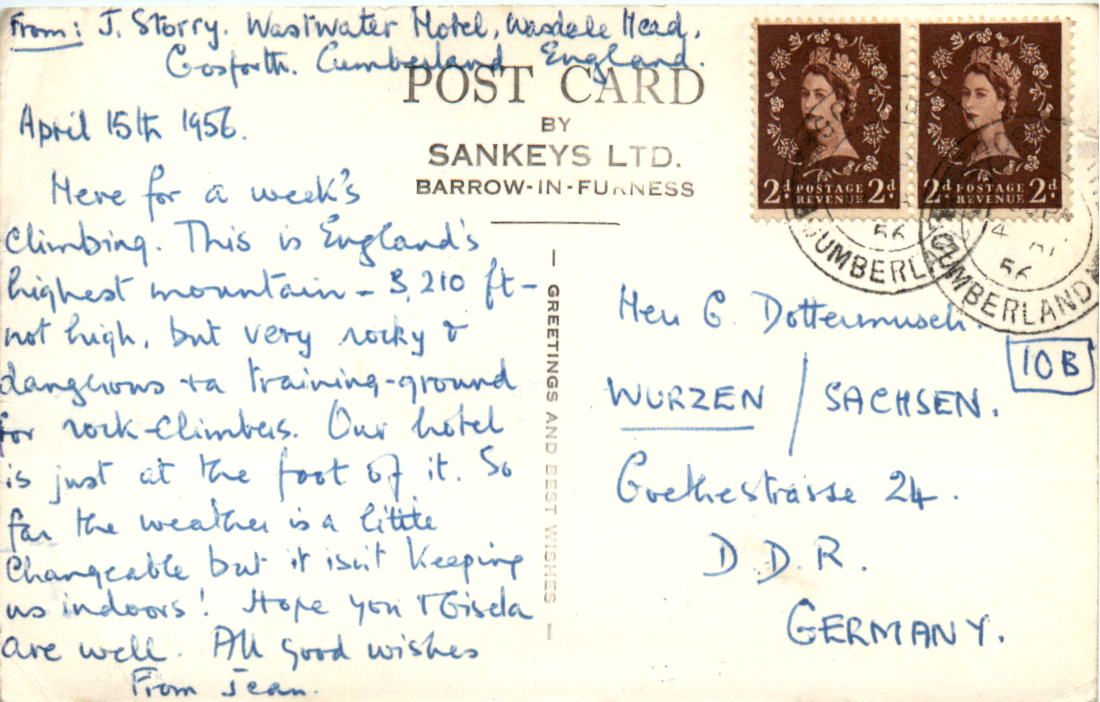 From: J. Storry. Wastwater Hotel, Wasdale Head,
Gosforth. Cumberland England.
POST CARD
BY
SANKEYS LTD.
BARROW-IN-FURNESS
April 15th 1956.
Here for a week's
climbing. This is England's
highest mountain - 3,210 ft -
not high, but very rocky &
dangerous & a training-ground
for rock-climbers. Our hotel
is just at the foot of it. So
far the weather is a little
changeable but it isn't keeping
us indoors! Hope you & Gisela
are well. All good wishes
From Jean.
GREETINGS AND BEST WISHES
2d POSTAGE REVENUE 2d
2d POSTAGE REVENUE 2d
56
CUMBERLAND
56
CUMBERLAND
Herr G. Dottermusch.
10B
WURZEN / SACHSEN.
Goethestrasse 24.
D.D.R.
GERMANY.